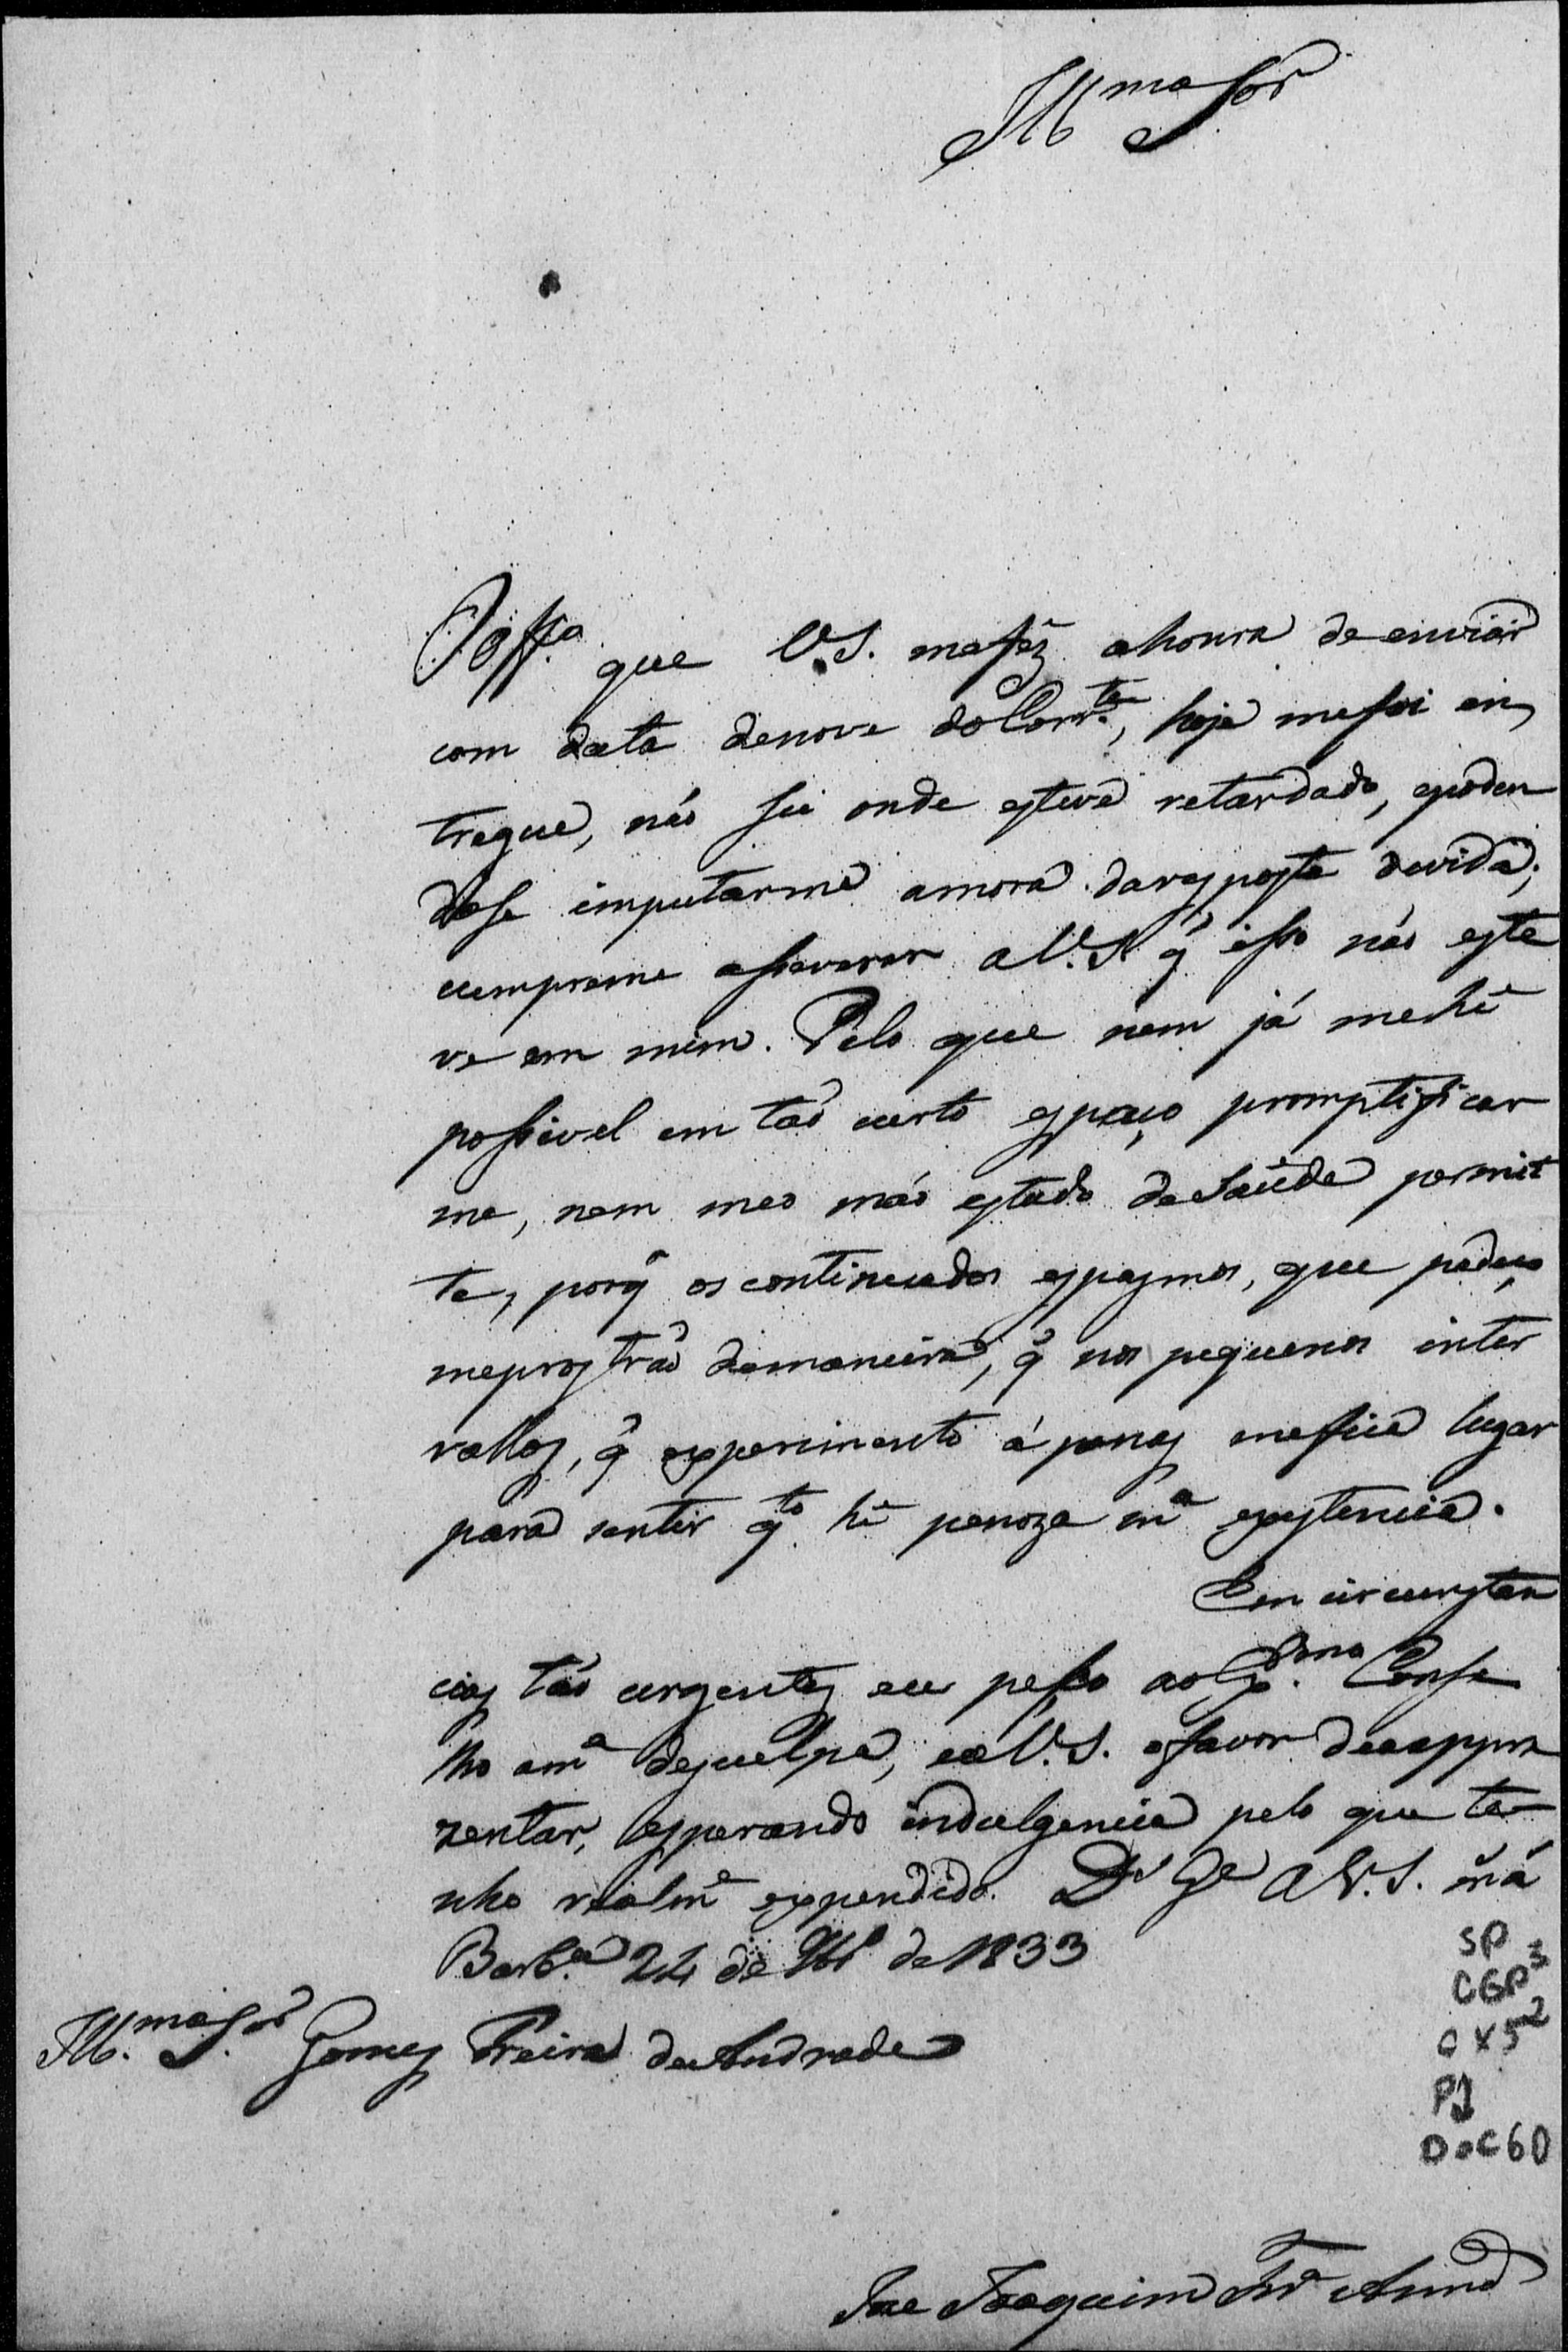 Illmo Sor
O offo que V.S. mefêz ahonra de enviár
com data denove doCorrte, hoje mefoi en
tregue, náo sei onde esteve retardado, epoden
dose imputarme amora daresposta devida;
cumpreme asseverar aV.S. q̃ isso náo este
ve em mim. Pelo que nem já mehé
possivel em táo curto espaço promptificar
me, nem meo máo estado deSaúde permit
te, porq̃ os continuados espasmos, que padeço
meprostráo demaneira, q̃ nos pequenos inter
vallos, q̃ experimento ápenas mefica lugar
para sentir qto hé penoza ma existencia.
Em circunstan
cias táo urgentes eu pesso aoExmo Conse
lho ama desculpa, eaV.S. ofavor deaappre
zentar, esperando indulgencia pelo que te
nho realme expendido. Ds Ge aV.S. má
Barba 24 de de 1833
Illmo Sor Gomes Freire deAndrade
SP
CGP3
CX52
P1
Doc60
Joze Joaquim